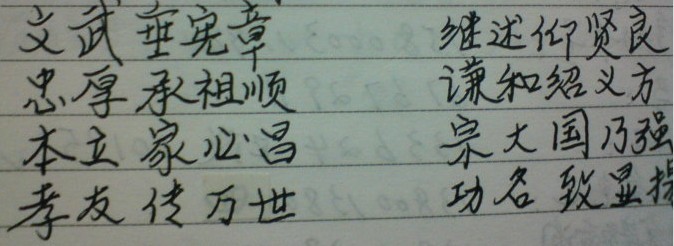 文武垂宪章 继述仰贤良
忠厚承祖顺 谦和绍义方
本立家必昌 宗大国乃强
孝友传万世 功名致显扬